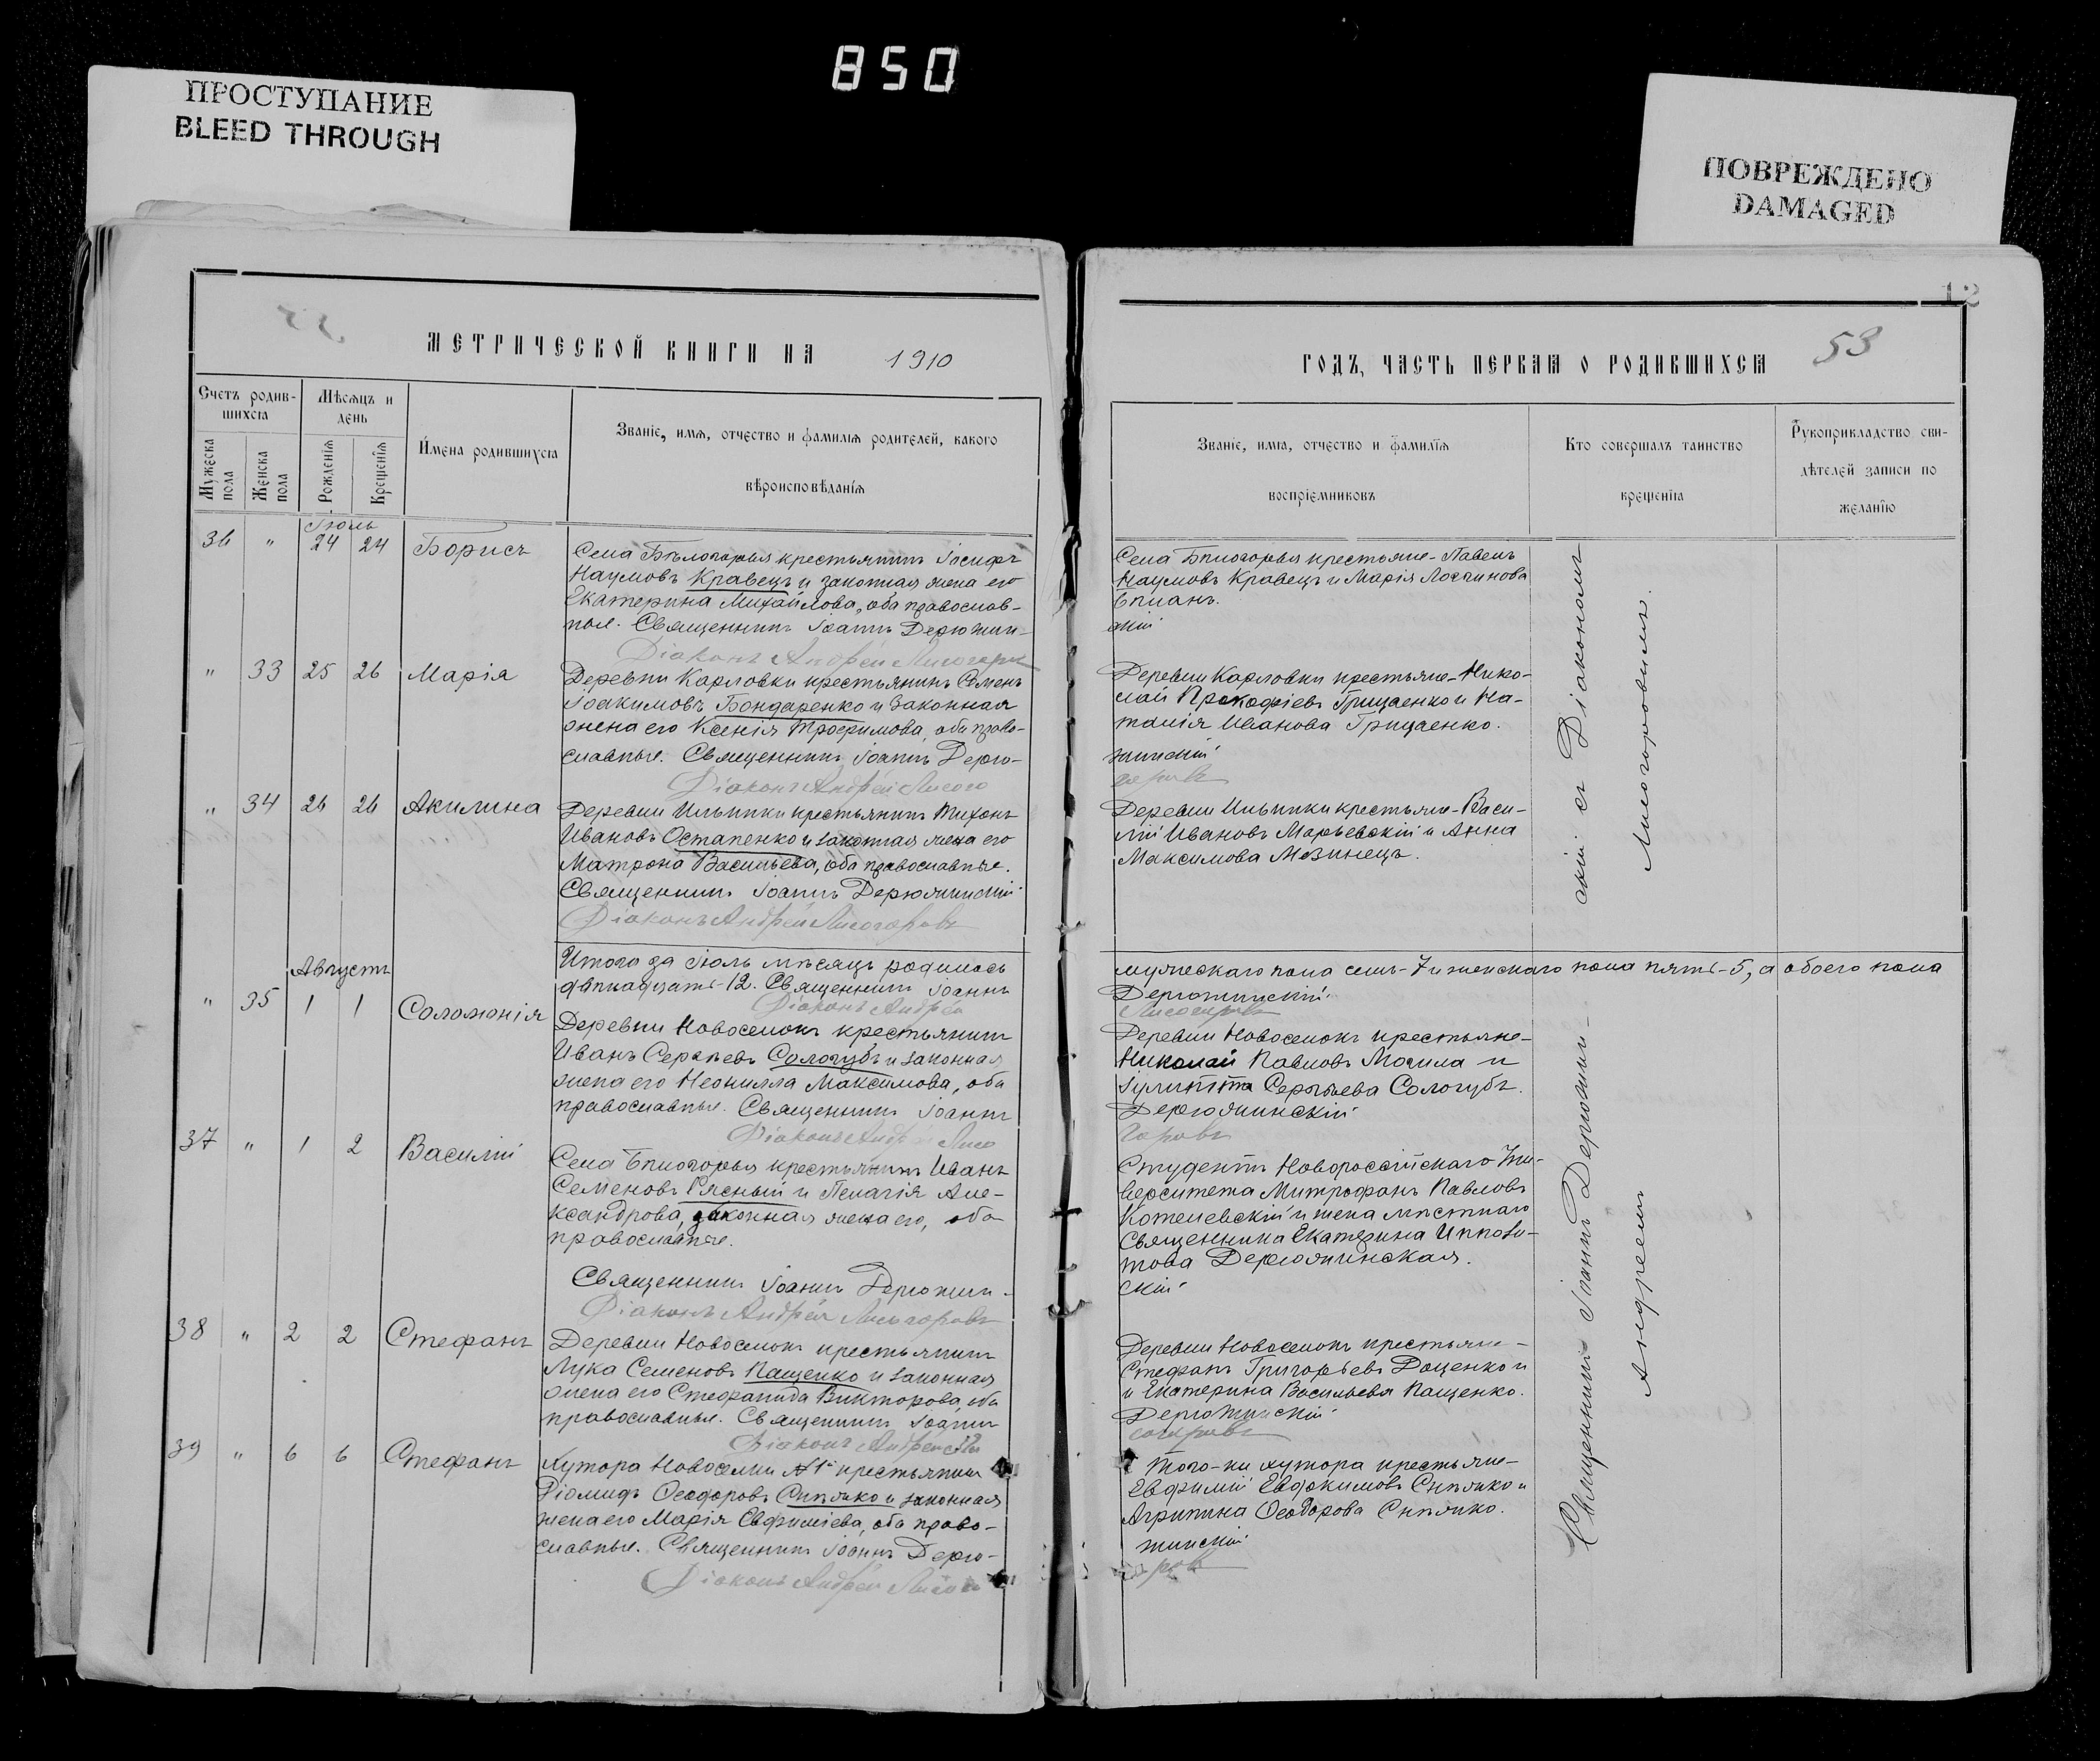 850
ПРОСТУПАНИЕ
BLEED THROUGH
ПОВРЕЖДЕНО
DAMAGED
12
МЕТРИЧЕСКОЙ КНИГИ НА 1910
Счетъ родив-
шихся
Мѣсяцъ и
день
Мужеска
пола
Женска
пола
Рожденія
Крещенія
Имена родившихся
Званіе, имя, отчество и фамилія родителей, какого
вѣроисповѣданія
Іюль
36 " 24 24 Борисъ
Села Бѣлогорья крестьянинъ Іосифъ
Наумовъ Кравецъ и законная жена его
Екатерина Михайлова, оба православ-
ные. Священникъ Іоаннъ Дерюжин-
Діаконъ Андрей Лисогоръ
" 33 25 26 Марія
Деревни Карловки крестьянинъ Семенъ
Іоакимовъ Бондаренко и законная
жена его Ксенія Трофимова, оба право-
славные. Священникъ Іоаннъ Дерю-
Діаконъ Андрей Лисого
" 34 26 26 Акилина
Деревни Ильинки крестьянинъ Тихонъ
Ивановъ Остапенко и законная жена его
Матрона Васильева, оба православные.
Священникъ Іоаннъ Дерюжинскій
Діаконъ Андрей Лисогоровъ
Итого за Іюль мѣсяцъ родилось
двѣнадцать-12. Священникъ Іоаннъ
Діаконъ Андрей
Августъ
" 35 1 1 Соломонія
Деревни Новоселокъ крестьянинъ
Иванъ Сергѣевъ Сологубъ и законная
жена его Неонилла Максимова, оба
православные. Священникъ Іоаннъ
Діаконъ Андрей Лисо
37 " 1 2 Василій
Села Бѣлогорья крестьянинъ Иванъ
Семеновъ Рясный и Пелагія Але-
ксандрова, законная жена его, оба
православные.
Священникъ Іоаннъ Дерюжин-
Діаконъ Андрей Лисогоровъ
38 " 2 2 Стефанъ
Деревни Новоселокъ крестьянинъ
Лука Семеновъ Пащенко и законная
жена его Стефанида Викторова, оба
православные. Священникъ Іоаннъ
Діаконъ Андрей Ли
39 " 6 6 Стефанъ
Хутора Новоселки №1й крестьянинъ
Діомидъ Ѳеодоровъ Снѣжко и законная
жена его Марія Евфиміева, оба право-
славные. Священникъ Іоаннъ Дерю-
Діаконъ Андрей Лисого
ГОДЪ, ЧАСТЬ ПЕРВАЯ О РОДИВШИХСЯ
53
Званіе, имя, отчество и фамилія
воспріемниковъ
Кто совершалъ таинство
крещенія
Рукоприкладство сви-
дѣтелей записи по
желанію
Села Бѣлогорья крестьяне-Павелъ
Наумовъ Кравецъ и Марія Логгинова
скій
Деревни Карловки крестьяне-Нико-
лай Прокофіевъ Грицаенко и На-
талія Иванова Грицаенко.
жинскій
горовъ
Деревни Ильинки крестьяне-Васи-
лій Ивановъ Марьевскій и Анна
Максимова Мезинецъ.
мужескаго пола семь-7 и женскаго пола пять-5, а обоего пола
Дерюжинскій
Лисогоровъ
Деревни Новоселокъ крестьяне-
Николай Павловъ Могила и
Іулитта Сергѣева Сологубъ.
Дерюжинскій
горовъ
Студентъ Новороссійскаго Уни-
верситета Митрофанъ Павловъ
Котелевскій и жена мѣстнаго
священника Екатерина Ипполи-
това Дерюжинская.
скій
Деревни Новоселокъ крестьяне-
Стефанъ Григорьевъ Доценко и
и Екатерина Васильева Пащенко.
Дерюжинскій
согоровъ
Того-же хутора крестьяне-
Евфимій Евдокимовъ Снѣжко и
Агрипина Ѳеодорова Снѣжко.
жинскій
ровъ
Священникъ Іоаннъ Дерюжин-
скій съ Діакономъ
Андреемъ
Лисогоровымъ.